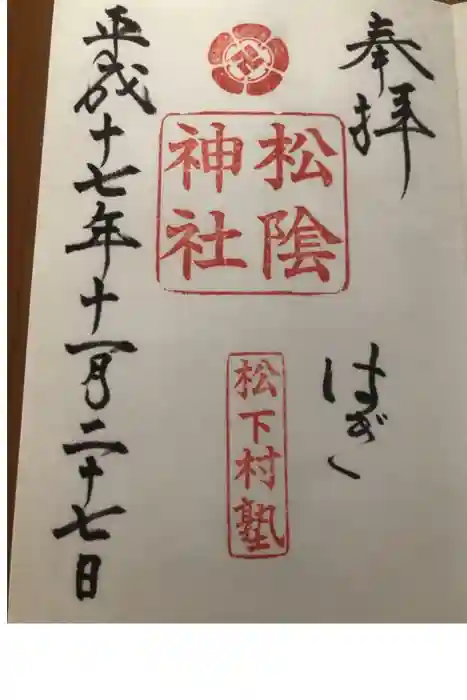 奉拝
はぎ
松陰
神社
松下村塾
平成十七年十一月二十七日